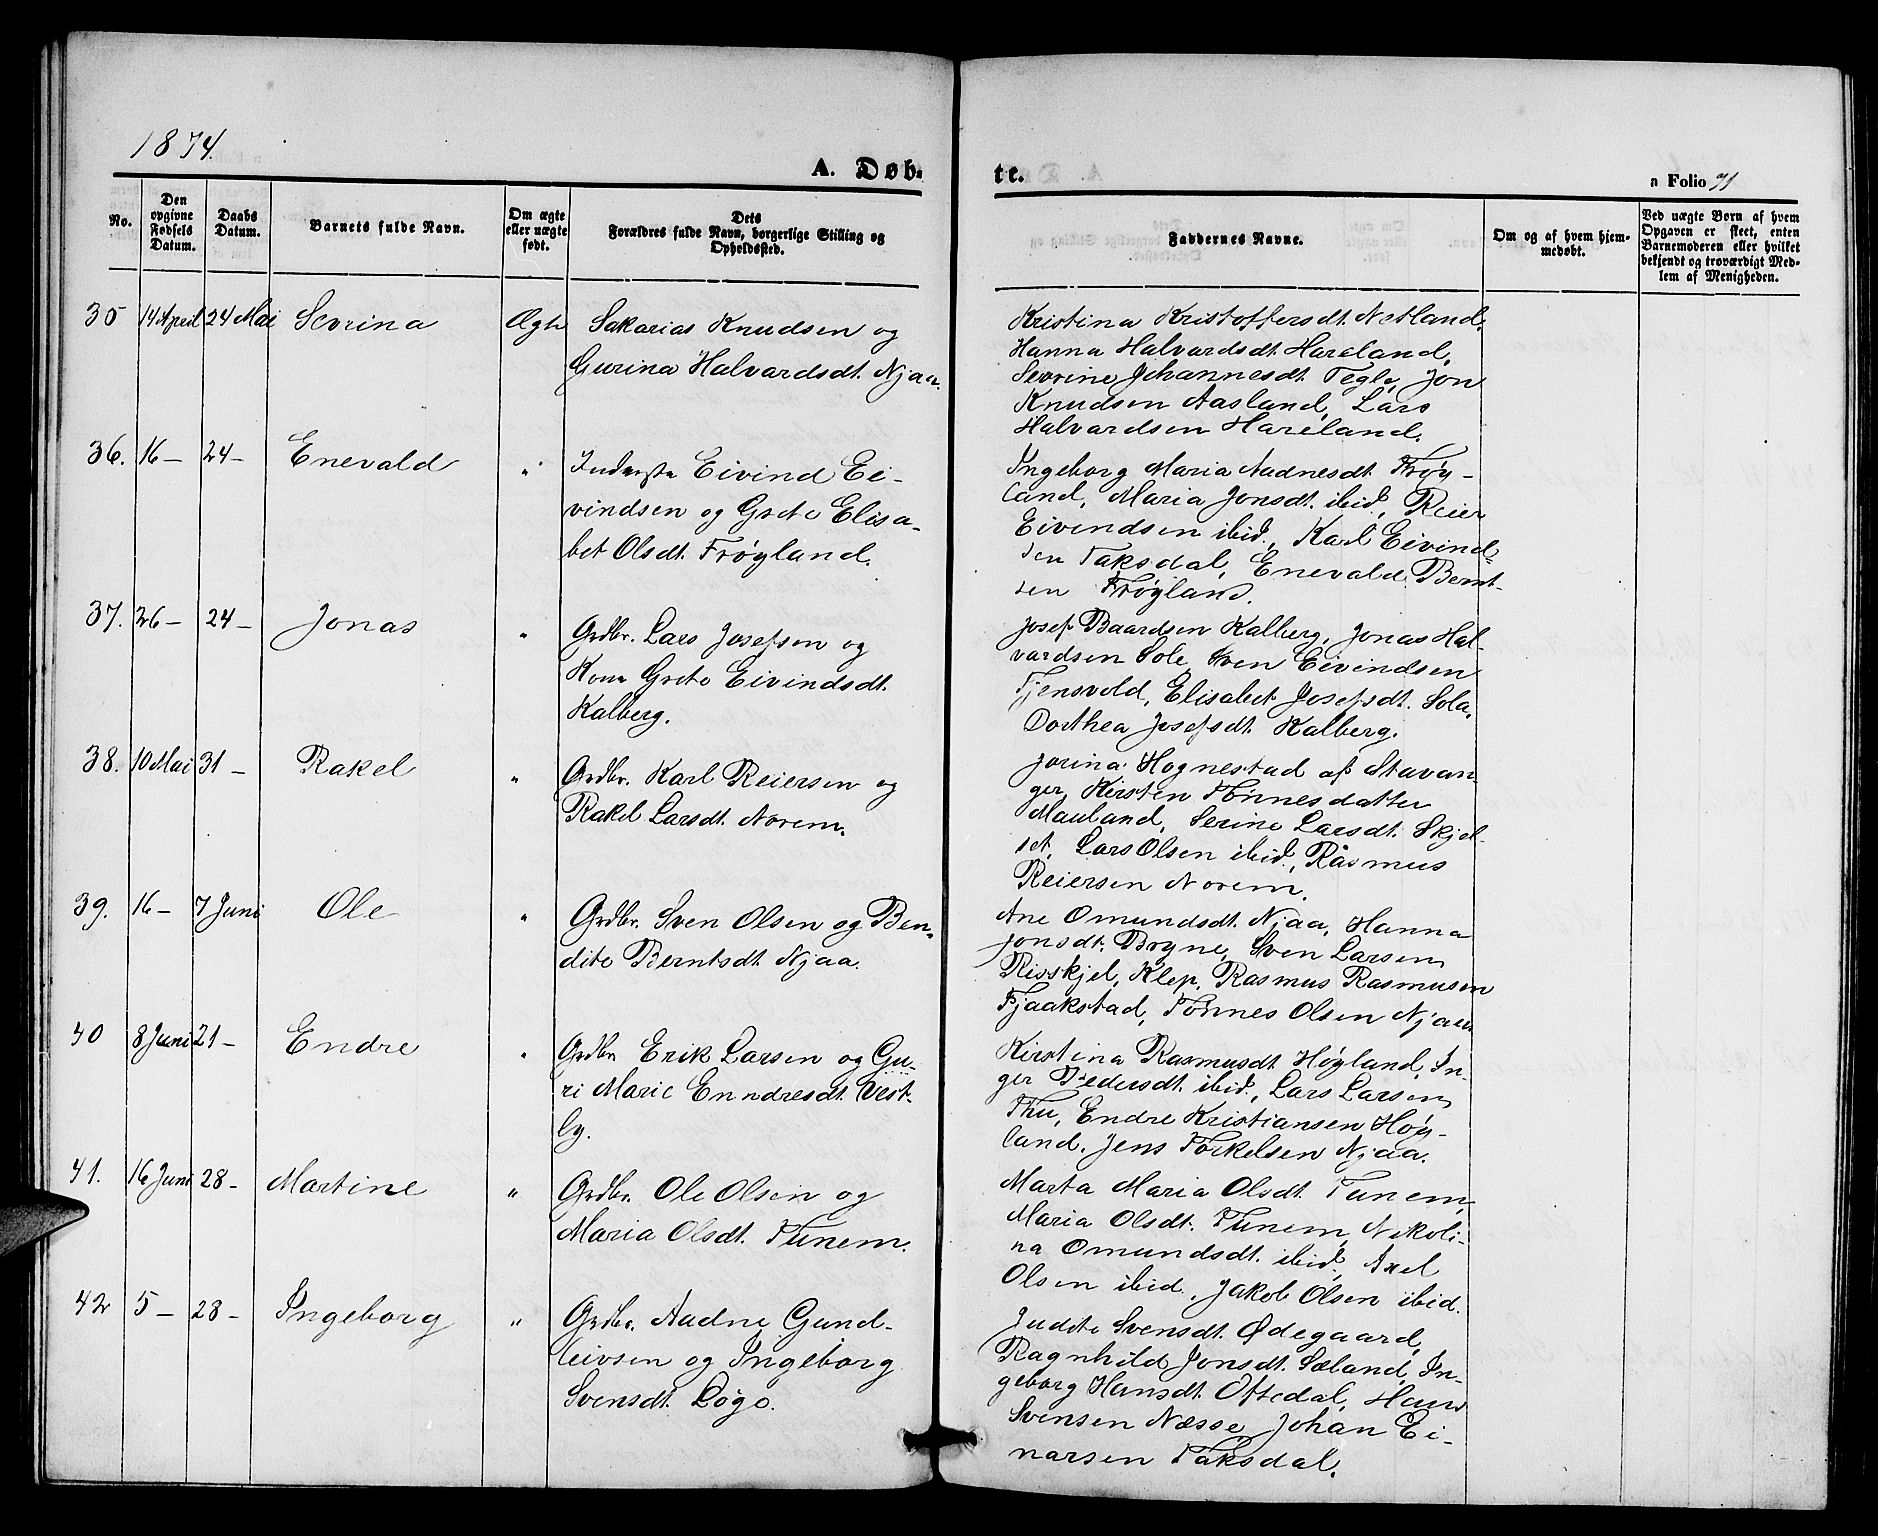 1874.
A. Døb-
te.
a Folio 71
No.
Den
opgivne
Fødsels
Datum.
Daabs
Datum.
Barnets fulde Navn.
Om ægte
eller uægte
født.
Dets
Forældres fulde Navn, borgerlige Stilling og
Opholdssted.
Faddernes Navne.
Om og af hvem hjem-
medøbt.
Ved uægte Børn af hvem
Opgaven er skeet, enten
Barnemoderen eller hvilket
bekjendt og troværdigt Med-
lem af Menigheden.
35 14 April 24 Mai Sevrina Ægte
Sakarias Knudsen og
Gurina Halvardsdt. Njaa.
Kristina Kristoffersdt. Netland,
Hanna Halvardsdt. Hareland,
Sevrine Johannesdt. Tegle, Jon
Knudsen Aasland, Lars
Halvardsen Hareland.
36. 16 – 24 – Enevald "
Inderste Eivind Ei-
vindsen og Grete Elisa-
bet Olsdt. Frøyland.
Ingeborg Maria Aadnesdt. Frøy-
land, Maria Jonsdt. ibid, Reier
Eivindsen ibid., Karl Eivind-
sen Taksdal, Enevald Bernt-
sen Frøyland.
37. 26 – 24 – Jonas "
Grdbr. Lars Josefsen og
Kone Grete Eivindsdt.
Kalberg.
Josef Baardsen Kalberg, Jonas Hal-
vardsen Sole, Sven Eivindsen
Tjensvold, Elisabet Josefsdt. Sola,
Dorthea Josefsdt. Kalberg.
38. 10 Mai 31 – Rakel "
Grdbr. Karl Reiersen og
Rakel Larsdt. Norem.
Jorina Hognestad af Stavan-
ger, Kirsten Tønnesdatter
Mauland, Serine Larsdt. Skjel-
set, Lars Olsen ibid., Rasmus
Reiersen Norem.
39. 16 – 7 Juni Ole "
Grdbr. Sven Olsen og Ben-
dite Berntsdt. Njaa.
Ane Omundsdt. Njaa, Hanna
Jonsdt. Bryne, Sven Larsen
Risskjel, Klep, Rasmus Rasmusen
Fjaakstad, Tønnes Olsen Njaa.
40 8 Juni 21 – Endre "
Grdbr. Erik Larsen og Gu-
ri Marie Enndresdt. Vest-
ly.
Kirstina Rasmusdt. Høyland, In-
ger Pedersdt. ibid., Lars Larsen
Thu, Endre Kristiansen Høy-
land, Jens Torkelsen Njaa.
41. 16 Juni 28 – Martine "
Grdbr. Ole Olsen og
Maria Olsdt. Tunem.
Marta Maria Olsdt. Tunem,
Maria Olsdt. Tunem, Nikoli-
na Omundsdt. ibid., Axel
Olsen ibid., Jakob Olsen ibid.
42 5 – 28 – Ingeborg "
Grdbr. Aadne Gund-
leivsen og Ingeborg
Svensdt. Løge.
Judite Svensdt. Ødegaard,
Ragnhild Jonsdt. Sæland, In-
geborg Hansdt. Oftedal, Hans
Svensen Næsse, Johan Ei-
narsen Taksdal.